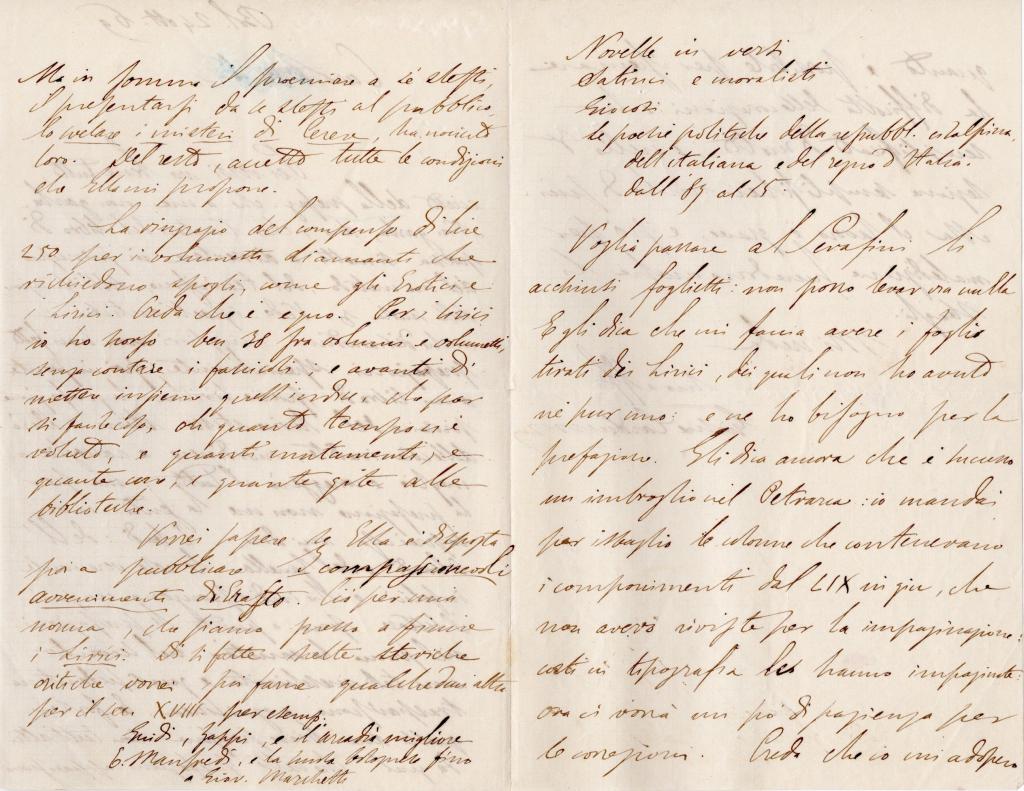 Ma in somma il proemiare a sè stessi,
il presentarsi da se stessi al pubblico,
lo svelare i misteri di Cerere, ha nociuto
loro. Del resto, accetto tutte le condizioni
che Ella mi propone.
La ringrazio del compenso di lire
250 per i volumetti diamanti che
richiedono spogli, come gli Erotici e
i Lirici. Creda che è equo. Per i Lirici
io ho scorso ben 38 fra volumi e volumetti,
senza contare i fascicoli: e avanti di
mettere insieme quell'indice, che par
sì facile cosa, oh quanto tempo ci è
voluto, e quanti mutamenti, e
quante cure, e quante gite alle
biblioteche.
Vorrei sapere se Ella è disposta
poi a pubblicare I compassionevoli
avvenimenti di Erasto. Ciò per mia
norma, che siamo presso a finire
i Lirici. Di sì fatte scelte storiche
critiche vorrei poi farne qualchedun'altra
per il sec. XVIII per esemp.
Guidi, Zappi, e l'arcadia migliore
E. Manfredi, e la scuola bolognese fino
a Giov. Marchetti
Novelle in versi
Satirici e moralisti
Giocosi
Le poesie politiche della repubbl. cisalpina
dell'italiana e del regno d'Italia.
dall' 89 al 15.
Voglia passare al Serafini li
acchiusi foglietti: non posso levar via nulla
E gli dica che mi faccia avere i foglie
tirati dei Lirici, dei quali non ho avuto
nè pur uno: e ne ho bisogno per la
prefazione. Gli dica ancora che è successo
un imbroglio nel Petrarca: io mandai
per isbaglio le colonne che contenevano
i componimenti dal LIX in giù, che
non avevo riviste per la impaginazione:
costì in tipografia le hanno impaginate:
ora ci vorrà un pò di pazienza per
le correzioni. Creda che io mi adopero